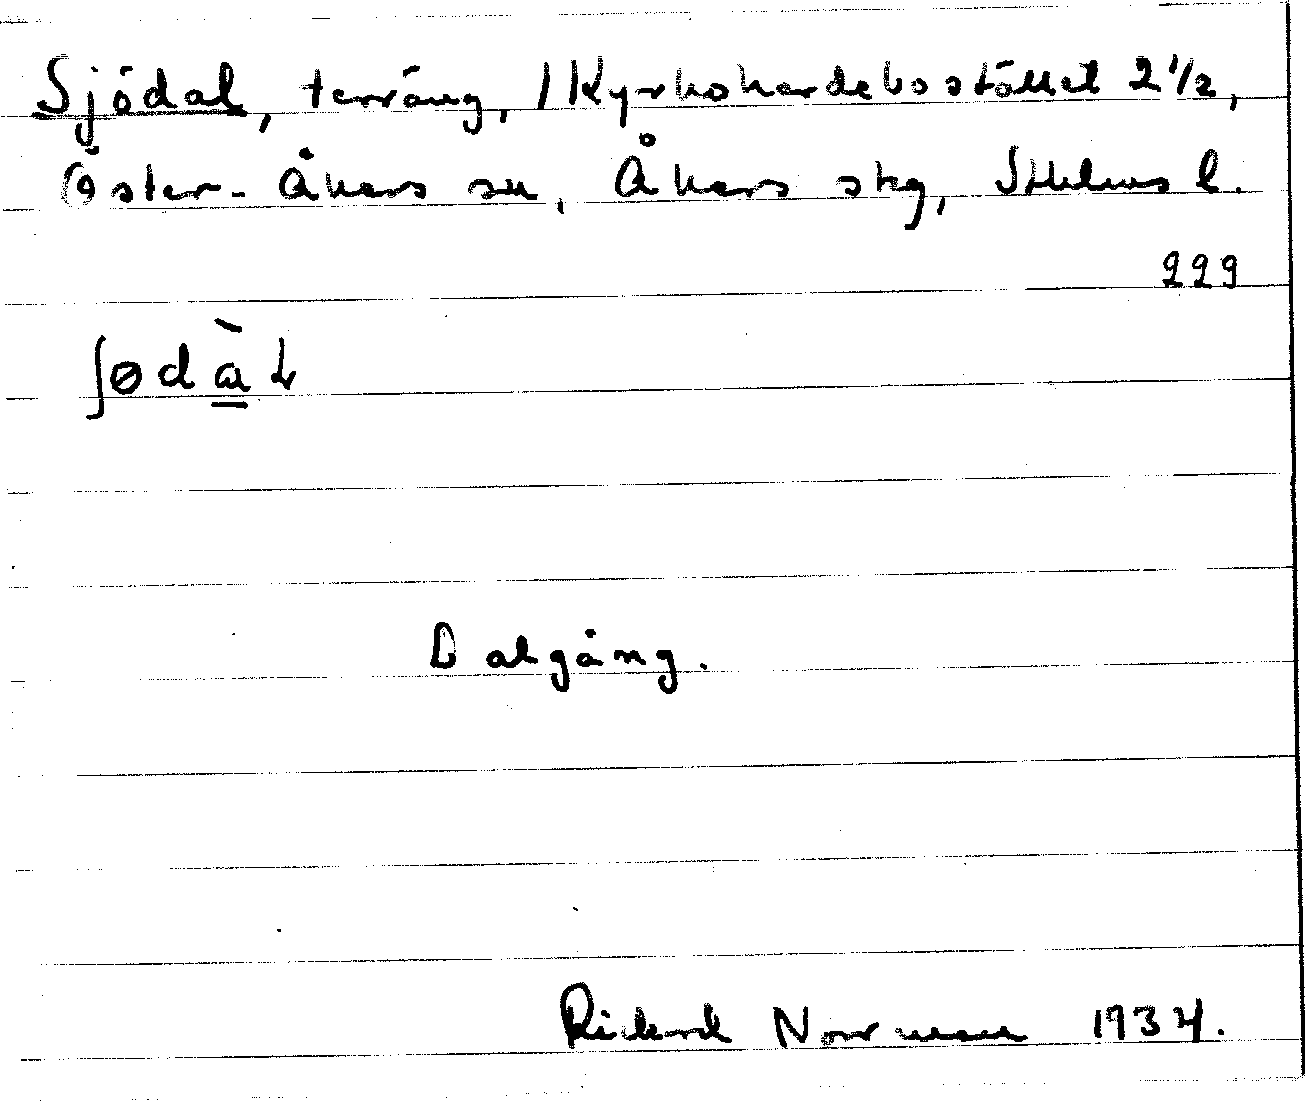 Sjödal, terräng, /Kyrkoherdebostället 2 1/2,
Öster-Åkers sn, Åkers skg, Sthlms l.
229
ʃødàl
Dalgång.
Rickard Norrman 1934.